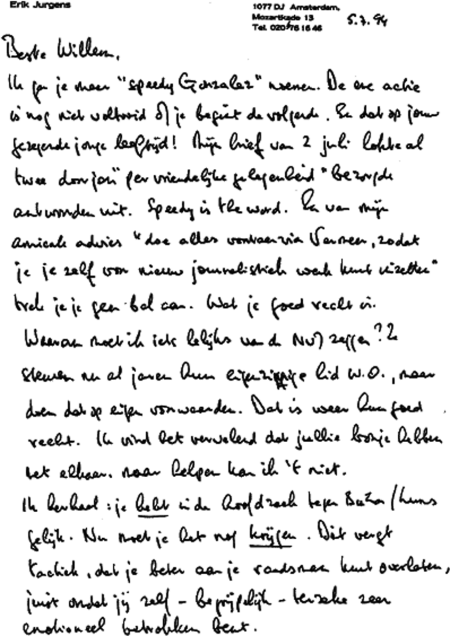 Erik Jurgens
1077 DJ Amsterdam,
Mozartkade 13
Tel. 020/76 16 46
5.7.94
Beste Willem,
Ik ga je maar "speedy Gonzalez" noemen. De ene actie
is nog niet voltooid of je begint de volgende. En dat op jouw
gezegende jonge leeftijd! Mijn brief van 2 juli lokte al
twee door jou "per vriendelijke gelegenheid" bezorgde
antwoorden uit. Speedy is the word. En van mijn
amicale advies "doe alles voortaan via Vermeer, zodat
je je zelf voor nieuw journalistiek werk kunt inzetten"
trek je je geen bal aan. Wat je goed recht is.
Waarom moet ik iets lelijks van de NVJ zeggen? Ze
steunen nu al jaren hun eigenzinnige lid W.O., maar
doen dat op eigen voorwaarden. Dat is weer hun goed
recht. Ik vind het vervelend dat jullie bonje hebben
met elkaar. maar helpen kan ik 't niet.
Ik herhaal: je hebt in de hoofdzaak tegen
gelijk. Nu moet je het nog krijgen. Dit vergt
tactiek, dat je beter aan je raadsman kunt overlaten,
juist omdat jij zelf - begrijpelijk - terzake zeer
emotioneel betrokken bent.